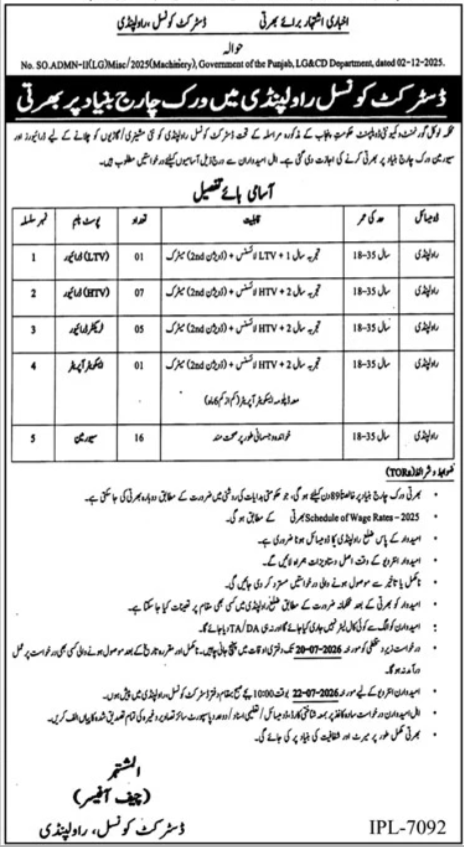 اخباری اشتہار برائے بھرتی ڈسٹرکٹ کونسل، راولپنڈی
حوالہ
No. SO.ADMN-II(LG)Misc/2025(Machinery), Government of the Punjab, LG&CD Department, dated 02-12-2025.
ڈسٹرکٹ کونسل راولپنڈی میں ورک چارج بنیاد پر بھرتی
محکمہ لوکل گورنمنٹ و کمیونٹی ڈویلپمنٹ حکومت پنجاب کے مذکورہ مراسلہ کے تحت ڈسٹرکٹ کونسل راولپنڈی کو نئی مشینری/گاڑیوں کو چلانے کے لیے ڈرائیورز اور
سیورمین ورک چارج بنیاد پر بھرتی کرنے کی اجازت دی گئی ہے۔ اہل امیدواران سے درج ذیل آسامیوں کیلئے درخواستیں مطلوب ہیں۔
آسامی ہائے تفصیل
نمبر سلسلہ پوسٹ نیم تعداد قابلیت حد کی عمر ڈومیسائل
1 ڈرائیور (LTV) 01 میٹرک (2nd ڈویژن) + لائسنس LTV + 1 سال تجربہ 18-35 سال راولپنڈی
2 ڈرائیور (HTV) 07 میٹرک (2nd ڈویژن) + لائسنس HTV + 2 سال تجربہ 18-35 سال راولپنڈی
3 ٹریکٹر ڈرائیور 05 میٹرک (2nd ڈویژن) + لائسنس HTV + 2 سال تجربہ 18-35 سال راولپنڈی
4 ایکسکویٹر آپریٹر 01 میٹرک (2nd ڈویژن) + لائسنس HTV + 2 سال تجربہ 18-35 سال راولپنڈی
معہ ڈپلومہ ایکسکویٹر آپریٹر (کم از کم 6 ماہ)
5 سیورمین 16 خواندہ و جسمانی طور پر صحت مند 18-35 سال راولپنڈی
ضوابط و شرائط (TORs)
• بھرتی ورک چارج بنیاد پر خالصتاً 89 دن کیلئے ہو گی، جو حکومتی ہدایات کی روشنی میں ضرورت کے مطابق دوبارہ بھرتی کی جا سکتی ہے۔
• بھرتی Schedule of Wage Rates – 2025 کے مطابق ہو گی۔
• امیدوار کے پاس ضلع راولپنڈی کا ڈومیسائل ہونا ضروری ہے۔
• امیدوار انٹرویو کے وقت اصل دستاویزات ہمراہ لائیں گے۔
• نامکمل یا تاخیر سے موصول ہونے والی درخواستیں مسترد کر دی جائیں گی۔
• امیدوار کو بھرتی کے بعد محکمانہ ضرورت کے مطابق ضلع راولپنڈی میں کسی بھی مقام پر تعینات کیا جا سکتا ہے۔
• امیدواران کو الگ سے کوئی کال لیٹر نہیں جاری کیا جائے گا اور نہ ہی TA/DA دیا جائے گا۔
• درخواست زیر دستخطی کو مورخہ 20-07-2026 تک دفتری اوقات میں پہنچ جانی چاہیں۔ نامکمل اور مقررہ تاریخ کے بعد موصول ہونے والی کسی بھی درخواست پر عمل
درآمد نہ ہو گا۔
• امیدواران انٹرویو کے لیے مورخہ 22-07-2026 بوقت 10:00 بجے صبح بمقام دفتر ڈسٹرکٹ کونسل، راولپنڈی میں پیش ہوں۔
• اہل امیدواران درخواست سادہ کاغذ پر بمعہ شناختی کارڈ، ڈومیسائل/تعلیمی اسناد/دو عدد پاسپورٹ سائز تصاویر وغیرہ کی تمام تصدیق شدہ کاپیاں الف کریں۔
• بھرتی مکمل طور پر میرٹ اور شفافیت کی بنیاد پر کی جائے گی۔
المشتہر
(چیف آفیسر)
ڈسٹرکٹ کونسل، راولپنڈی
IPL-7092